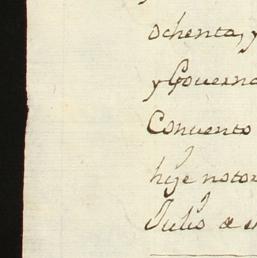 ochenta, y
y Governa
Convento
hije notor
Julio a